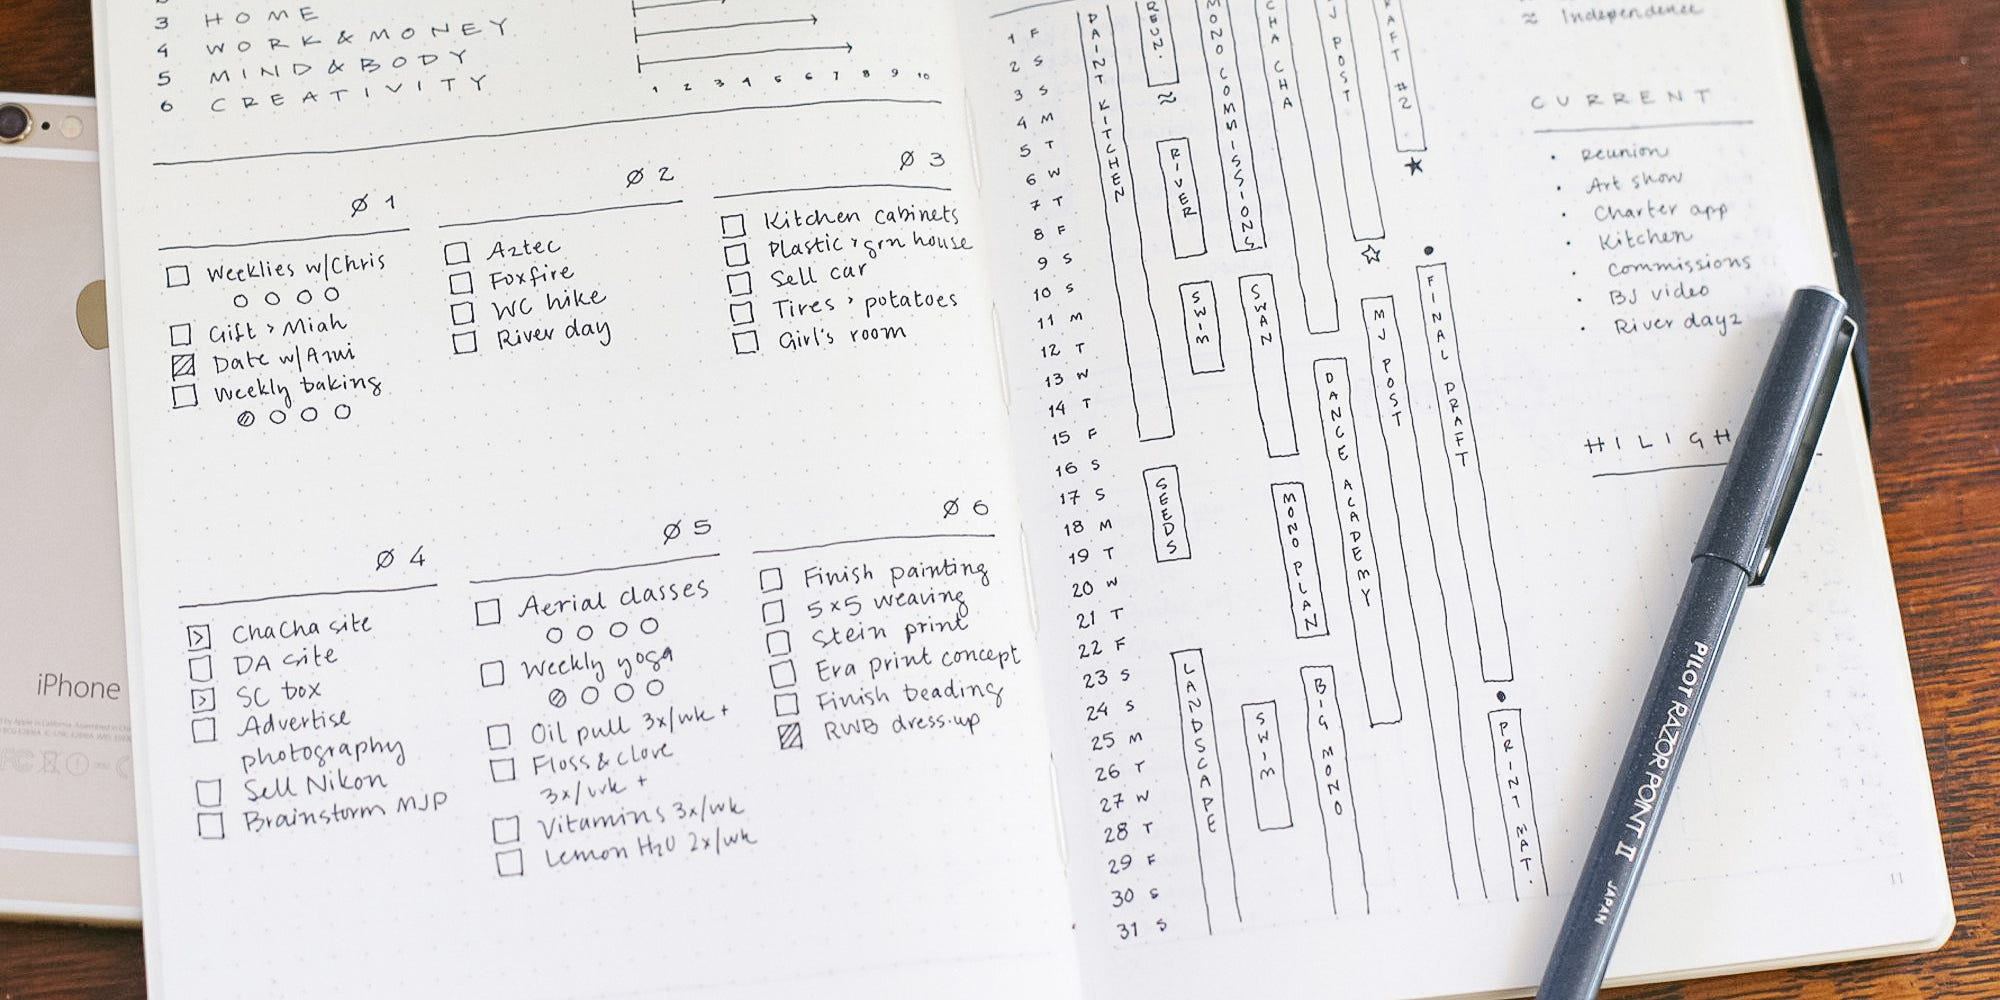 3 HOME
4 WORK & MONEY
5 MIND & BODY
6 CREATIVITY
1 2 3 4 5 6 7 8 9 10
Ø1
Weeklies w/Chris
Gift > Miah
Date w/Azui
Weekly baking
Ø2
Aztec
Foxfire
WC hike
River day
Ø3
Kitchen cabinets
Plastic > grn house
Sell car
Tires > potatoes
Girl's room
Ø4
ChaCha site
DA site
SC box
Advertise
photography
Sell Nikon
Brainstorm MJP
Ø5
Aerial classes
Weekly yoga
Oil pull 3x/wk +
Floss & clove
3x/wk +
Vitamins 3x/wk
Lemon H2O 2x/wk
Ø6
Finish painting
5x5 weaving
Stein print
Era print concept
Finish beading
RWB dress-up
1 F
2 S
3 S
4 M
5 T
6 W
7 T
8 F
9 S
10 S
11 M
12 T
13 W
14 T
15 F
16 S
17 S
18 M
19 T
20 W
21 T
22 F
23 S
24 S
25 M
26 T
27 W
28 T
29 F
30 S
31 S
PAINT KITCHEN
SEEDS
LANDSCAPE
REUN.
RIVER
SWIM
SWIM
MONO COMMISSIONS
SWAN
MONO PLAN
BIG MONO
CHA CHA
DANCE ACADEMY
MJ POST
MJ POST
#2
FINAL DRAFT
PRINT MAT.
≈ Independence
CURRENT
• Reunion
• Art show
• Charter app
• Kitchen
• Commissions
• BJ video
• River day2
HILIGH
11
iPhone
PILOT RAZOR POINT II JAPAN